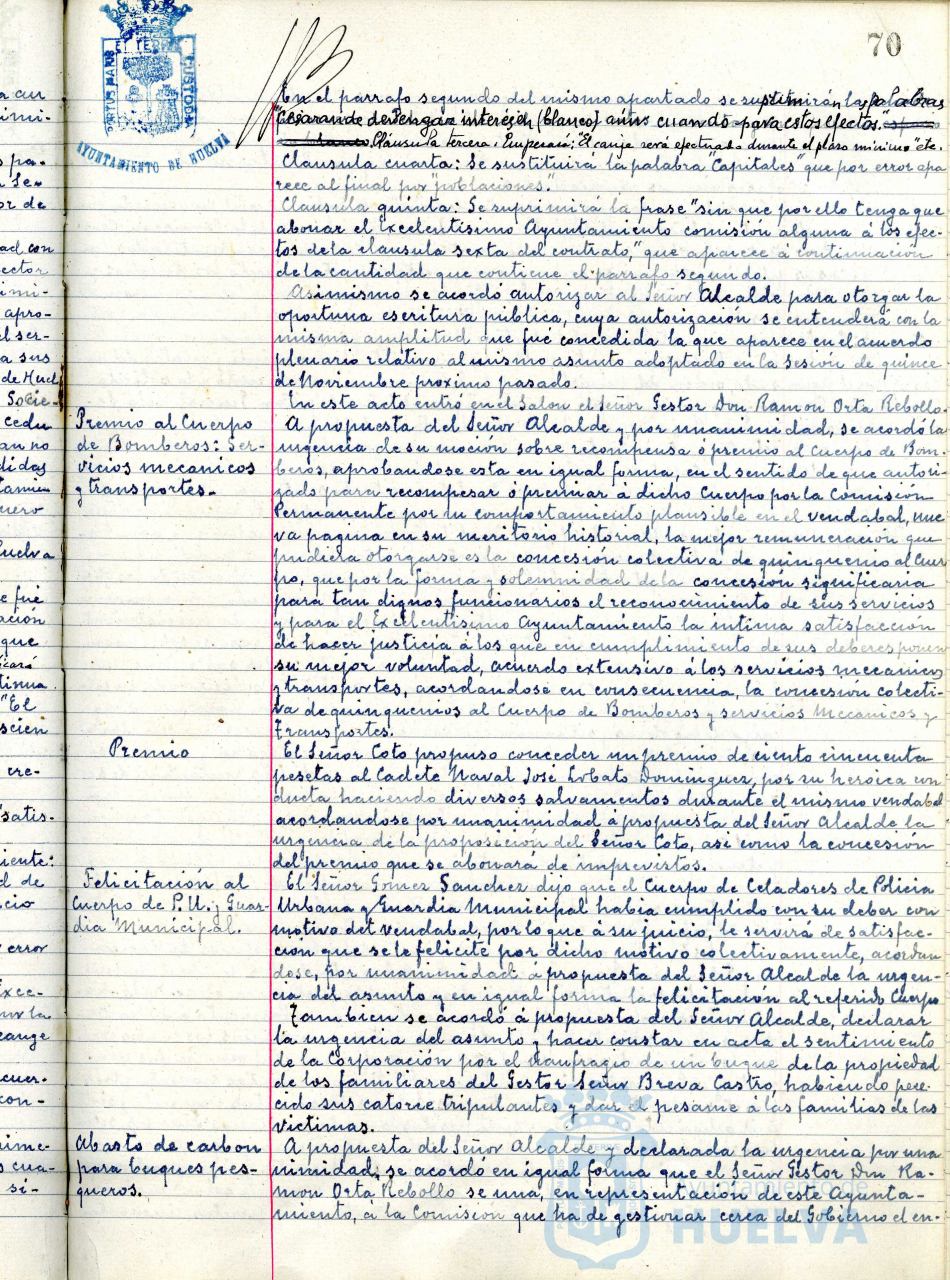 70
PORTUS MARIS ET TERRÆ CUSTODIA
AYUNTAMIENTO DE HUELVA
En el parrafo segundo del mismo apartado se suprimirán las palabras
devengar interesen (blanco) aun cuando para estos efectos."
Clausula tercera: Empezará; "El canje será efectuado durante el plazo minimo etc.
Clausula cuarta: Se sustituirá la palabra "Capitales" que por error apa
rece al final por "poblaciones."
Clausula quinta: Se suprimirá la frase "sin que por ello tenga que
abonar el Excelentisimo Ayuntamiento comisión alguna á los efec-
tos de la clausula sexta del contrato," que aparece á continuación
de la cantidad que contiene el parrafo segundo.
Asimismo se acordó autorizar al Señor Alcalde para otorgar la
oportuna escritura pública, cuya autorización se entenderá con la
misma amplitud que fué concedida la que aparece en el acuerdo
plenario relativo al mismo asunto adoptado en la Sesión de quince
de Noviembre proximo pasado.
En este acto entró en el Salon el Señor Gestor Don Ramon Orta Rebollo.
Premio al Cuerpo
de Bomberos: Ser-
vicios mecanicos
y transportes.-
A propuesta del Señor Alcalde y por unanimidad, se acordó la
urgencia de su moción sobre recompensa ó premio al Cuerpo de Bom-
beros, aprobandose esta en igual forma, en el sentido de que autori-
zado para recompesar ó premiar á dicho Cuerpo por la Comisión
Permanente por su comportamiento plausible en el vendabal, nue
va pagina en su meritorio historial, la mejor remuneración que
pudiera otorgarse es la concesión colectiva de quinquenio al Cuer
po, que por la forma y solemnidad de la concesión significaria
para tan dignos funcionarios el reconocimiento de sus servicios
y para el Excelentisimo Ayuntamiento la intima satisfacción
de hacer justicia á los que en cumplimiento de sus deberes ponen
su mejor voluntad, acuerdo extensivo á los servicios mecanicos
y transportes, acordandose en consecuencia, la concesión colecti-
va de quinquenios al Cuerpo de Bomberos y servicios Mecanicos y
Transportes.
Premio
El Señor Coto propuso conceder un premio de ciento cincuenta
pesetas al Cadete Naval José Lobato Dominguez, por su heroica con
ducta haciendo diversos salvamentos durante el mismo vendabal
acordandose por unanimidad á propuesta del Señor Alcalde la
urgencia de la proposición del Señor Coto, asi como la concesión
del premio que se abonará de imprevistos.
Felicitación al
Cuerpo de P.U. y Guar-
dia Municipal.
El Señor Gomez Sanchez dijo que el Cuerpo de Celadores de Policia
Urbana y Guardia Municipal habia cumplido con su deber con
motivo del vendabal, por lo que á su juicio, le servirá de satisfac-
ción que se le felicite por dicho motivo colectivamente, acordan
dose, por unanimidad á propuesta del Señor Alcalde la urgen-
cia del asunto y en igual forma la felicitación al referido Cuerpo
Tambien se acordó á propuesta del Señor Alcalde, declarar
la urgencia del asunto y hacer constar en acta el sentimiento
de la Corporación por el naufragio de un buque de la propiedad
de los familiares del Gestor Señor Breva Castro, habiendo pere-
cido sus catorce tripulantes y dar el pesame á las familias de las
victimas.
Abasto de carbon
para buques pes-
queros.
A propuesta del Señor Alcalde y declarada la urgencia por una
nimidad, se acordó en igual forma que el Señor Gestor Don Ra-
mon Orta Rebollo se una, en representación de este Ayunta-
miento, á la Comisión que ha de gestionar cerca del Gobierno el en-
Ayuntamiento de
HUELVA